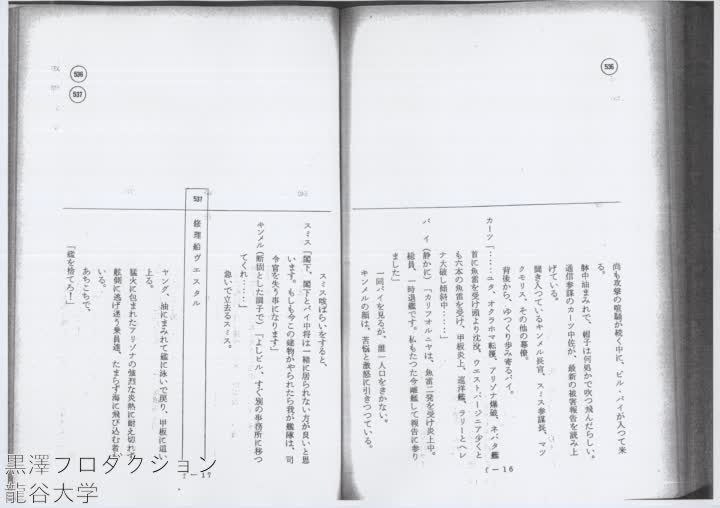 536
尚も攻撃の喧騒が続く中に、ビル・パイが入って来
る。
躰中油まみれで、帽子は何処かで吹つ飛んだらしい。
通信参謀のカーツ中佐が、最新の被害報告を読み上
げている。
聞き入つているキンメル長官、スミス参謀長、マッ
クモリス、その他の幕僚。
背後から、ゆつくり歩み寄るパイ。
カーツ「……ユタ、オクラホマ転覆、アリゾナ爆破、ネバダ艦
首に魚雷を受け頭より沈没、ウエストバージニア少くと
も六本の魚雷を受け、甲板炎上、巡洋艦、ラリーとヘレ
ナ大破し傾斜中……」
パイ(静かに)「カリフオルニヤは、魚雷二発を受け炎上中。
総員、一時退艦です。私もたつた今離艦して報告に参り
ました」
一同パイを見るが、誰一人口をきかない。
キンメルの顔は、苦悩と激怒に引きつつている。
f—16
536
537
スミス咳ばらいをすると、
スミス「閣下、閣下とパイ中将は一緒に居られない方が良いと思
います。もしも今この建物がやられたら我が艦隊は、司
令官を失う事になります」
キンメル(断固とした調子で)「よしビル、すぐ別の事務所に移つ
てくれ……」
急いで立去るスミス。
537 修理船ヴエスタル
ヤング、油にまみれて艦に泳いで戻り、甲板に這い
上る。
猛火に包まれたアリゾナの強烈な炎熱に耐え切れず
舷側に逃げ迷う乗員達、たまらず海に飛び込む者も
いる。
あちこちで、
「艦を捨てろ！」
f—17
黒澤プロダクション
龍谷大学